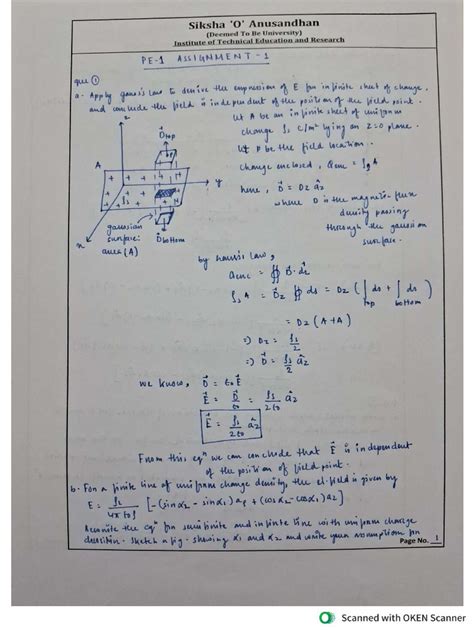 Siksha 'O' Anusandhan
(Deemed To Be University)
Institute of Technical Education and Research
PE-1 ASSIGNMENT-1
que ①
a- Apply gauss's law to derive the expression of E for infinite sheet of charge,
and conclude the field is independent of the position of the field point.
Let A be an infinite sheet of uniform
charge ρs C/m² lying on z=0 plane.
Let P be the field location.
charge enclosed, Qenc = ρs A
here, D⃗ = Dz âz
where D is the magnetic flux
density passing
through the gaussian
surface.
z
D⃗top
A
y
ρs
gaussian
surface
area (A)
D⃗bottom
x
by gauss's law,
Qenc = ∯ D⃗·ds⃗
ρs A = Dz ∯ ds = Dz ( ∫top ds + ∫bottom ds )
= Dz (A+A)
⇒ Dz = ρs/2
⇒ D⃗ = ρs/2 âz
we know, D⃗ = ε0 E⃗
E⃗ = D⃗/ε0 = ρs/2ε0 âz
E⃗ = ρs/2ε0 âz
From this eqn we can conclude that E⃗ is independent
of the position of field point.
b- For a finite line of uniform charge density, the el. field is given by
E = ρs/4πε0ρ [-(sinα2 - sinα1)aρ + (cosα2 - cosα1)az]
the eqn for semi finite and infinite line with uniform charge
Sketch a fig. showing α1 and α2 and write your assumption for
Page No. 1
Scanned with OKEN Scanner